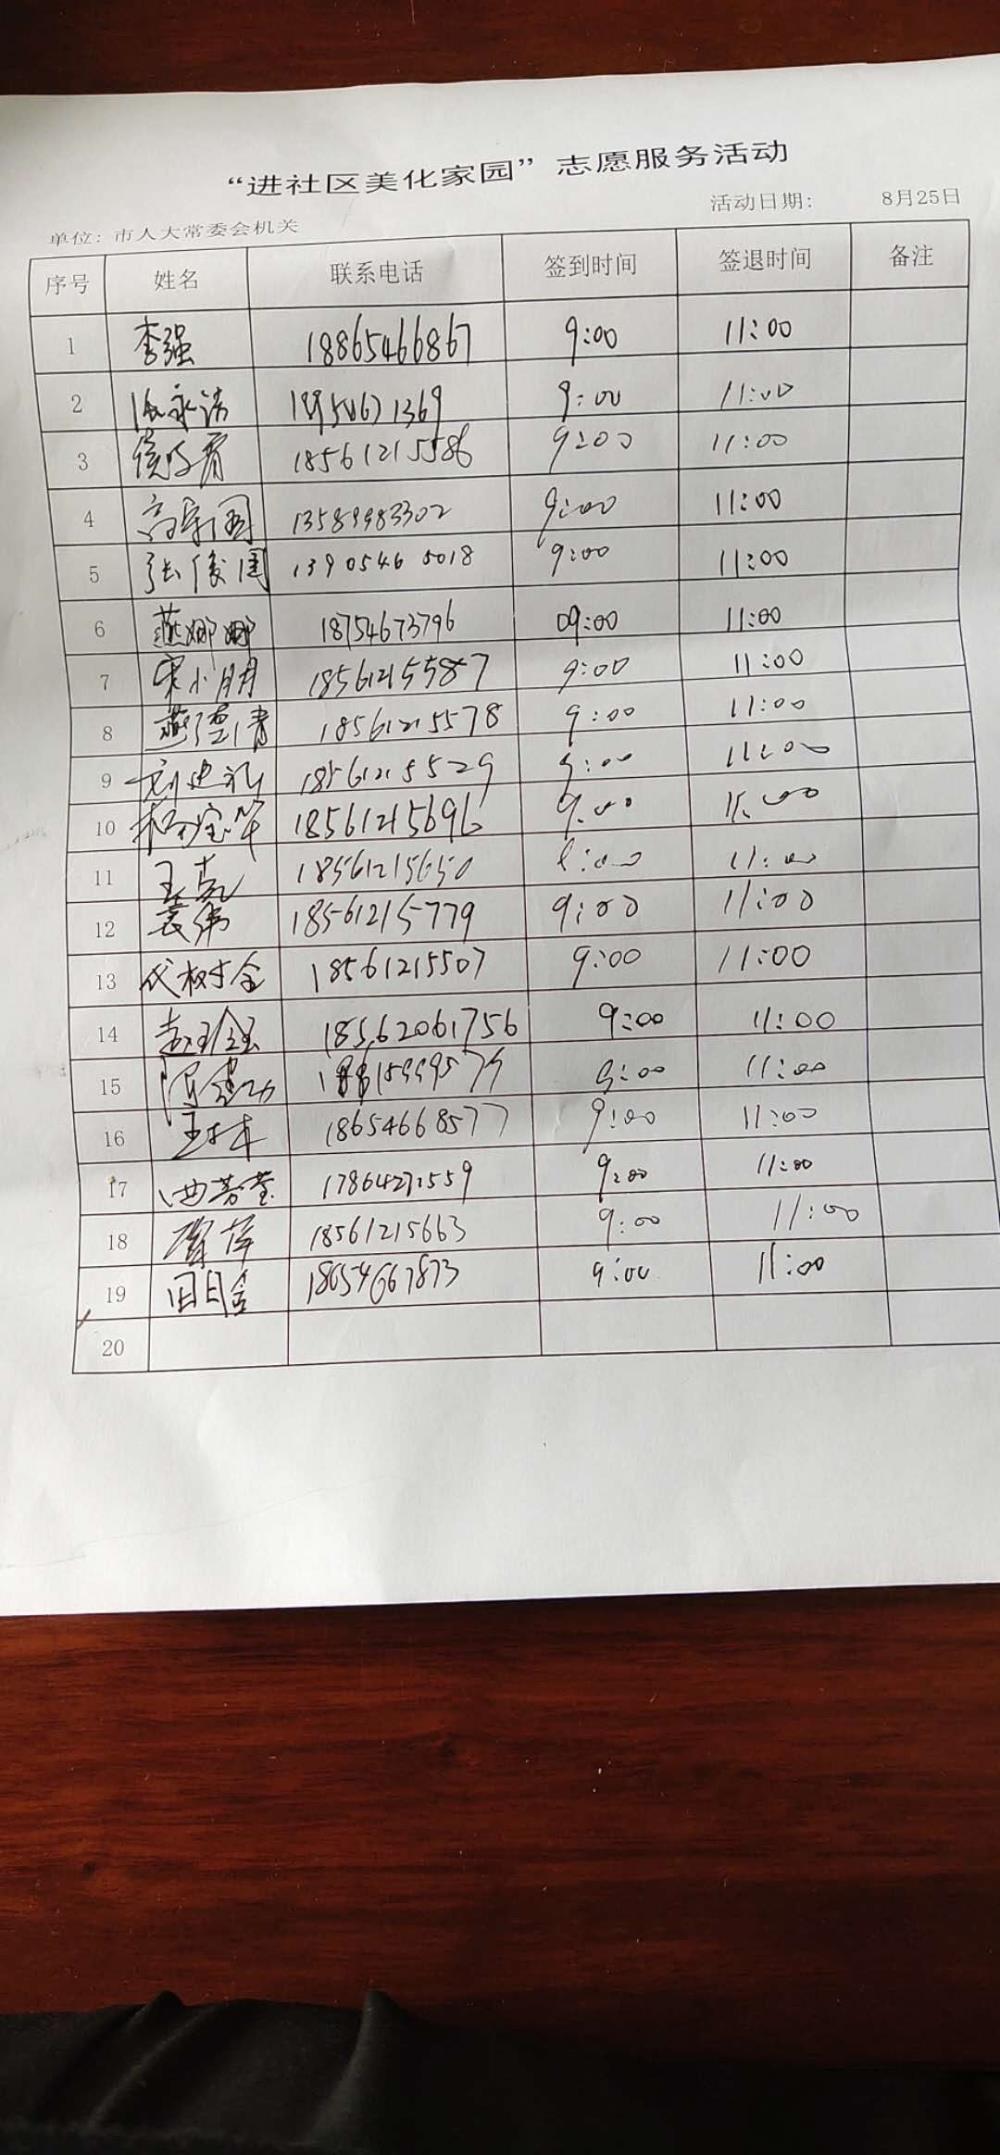 “进社区美化家园”志愿服务活动
单位：市人大常委会机关 活动日期： 8月25日
序号 姓名 联系电话 签到时间 签退时间 备注
1 李强 18865466867 9:00 11:00
2 9:00 11:00
3 18561215586 9:00 11:00
4 13589983302 9:00 11:00
5 张俊国 13905465018 9:00 11:00
6 燕娜娜 18754673796 09:00 11:00
7 宋小月月 18561215587 9:00 11:00
8 18561215578 9:00 11:00
9 18561215529 9:00 11:00
10 18561215696 9:00 11:00
11 王克 18561215650 11:00
12 袁伟 18561215779 9:00 11:00
13 代树全 18561215507 9:00 11:00
14 18562061756 9:00 11:00
15 9:00 11:00
16 18654668577 9:00 11:00
17 9:00 11:00
18 18561215663 9:00 11:00
19 18654667873 9:00 11:00
20